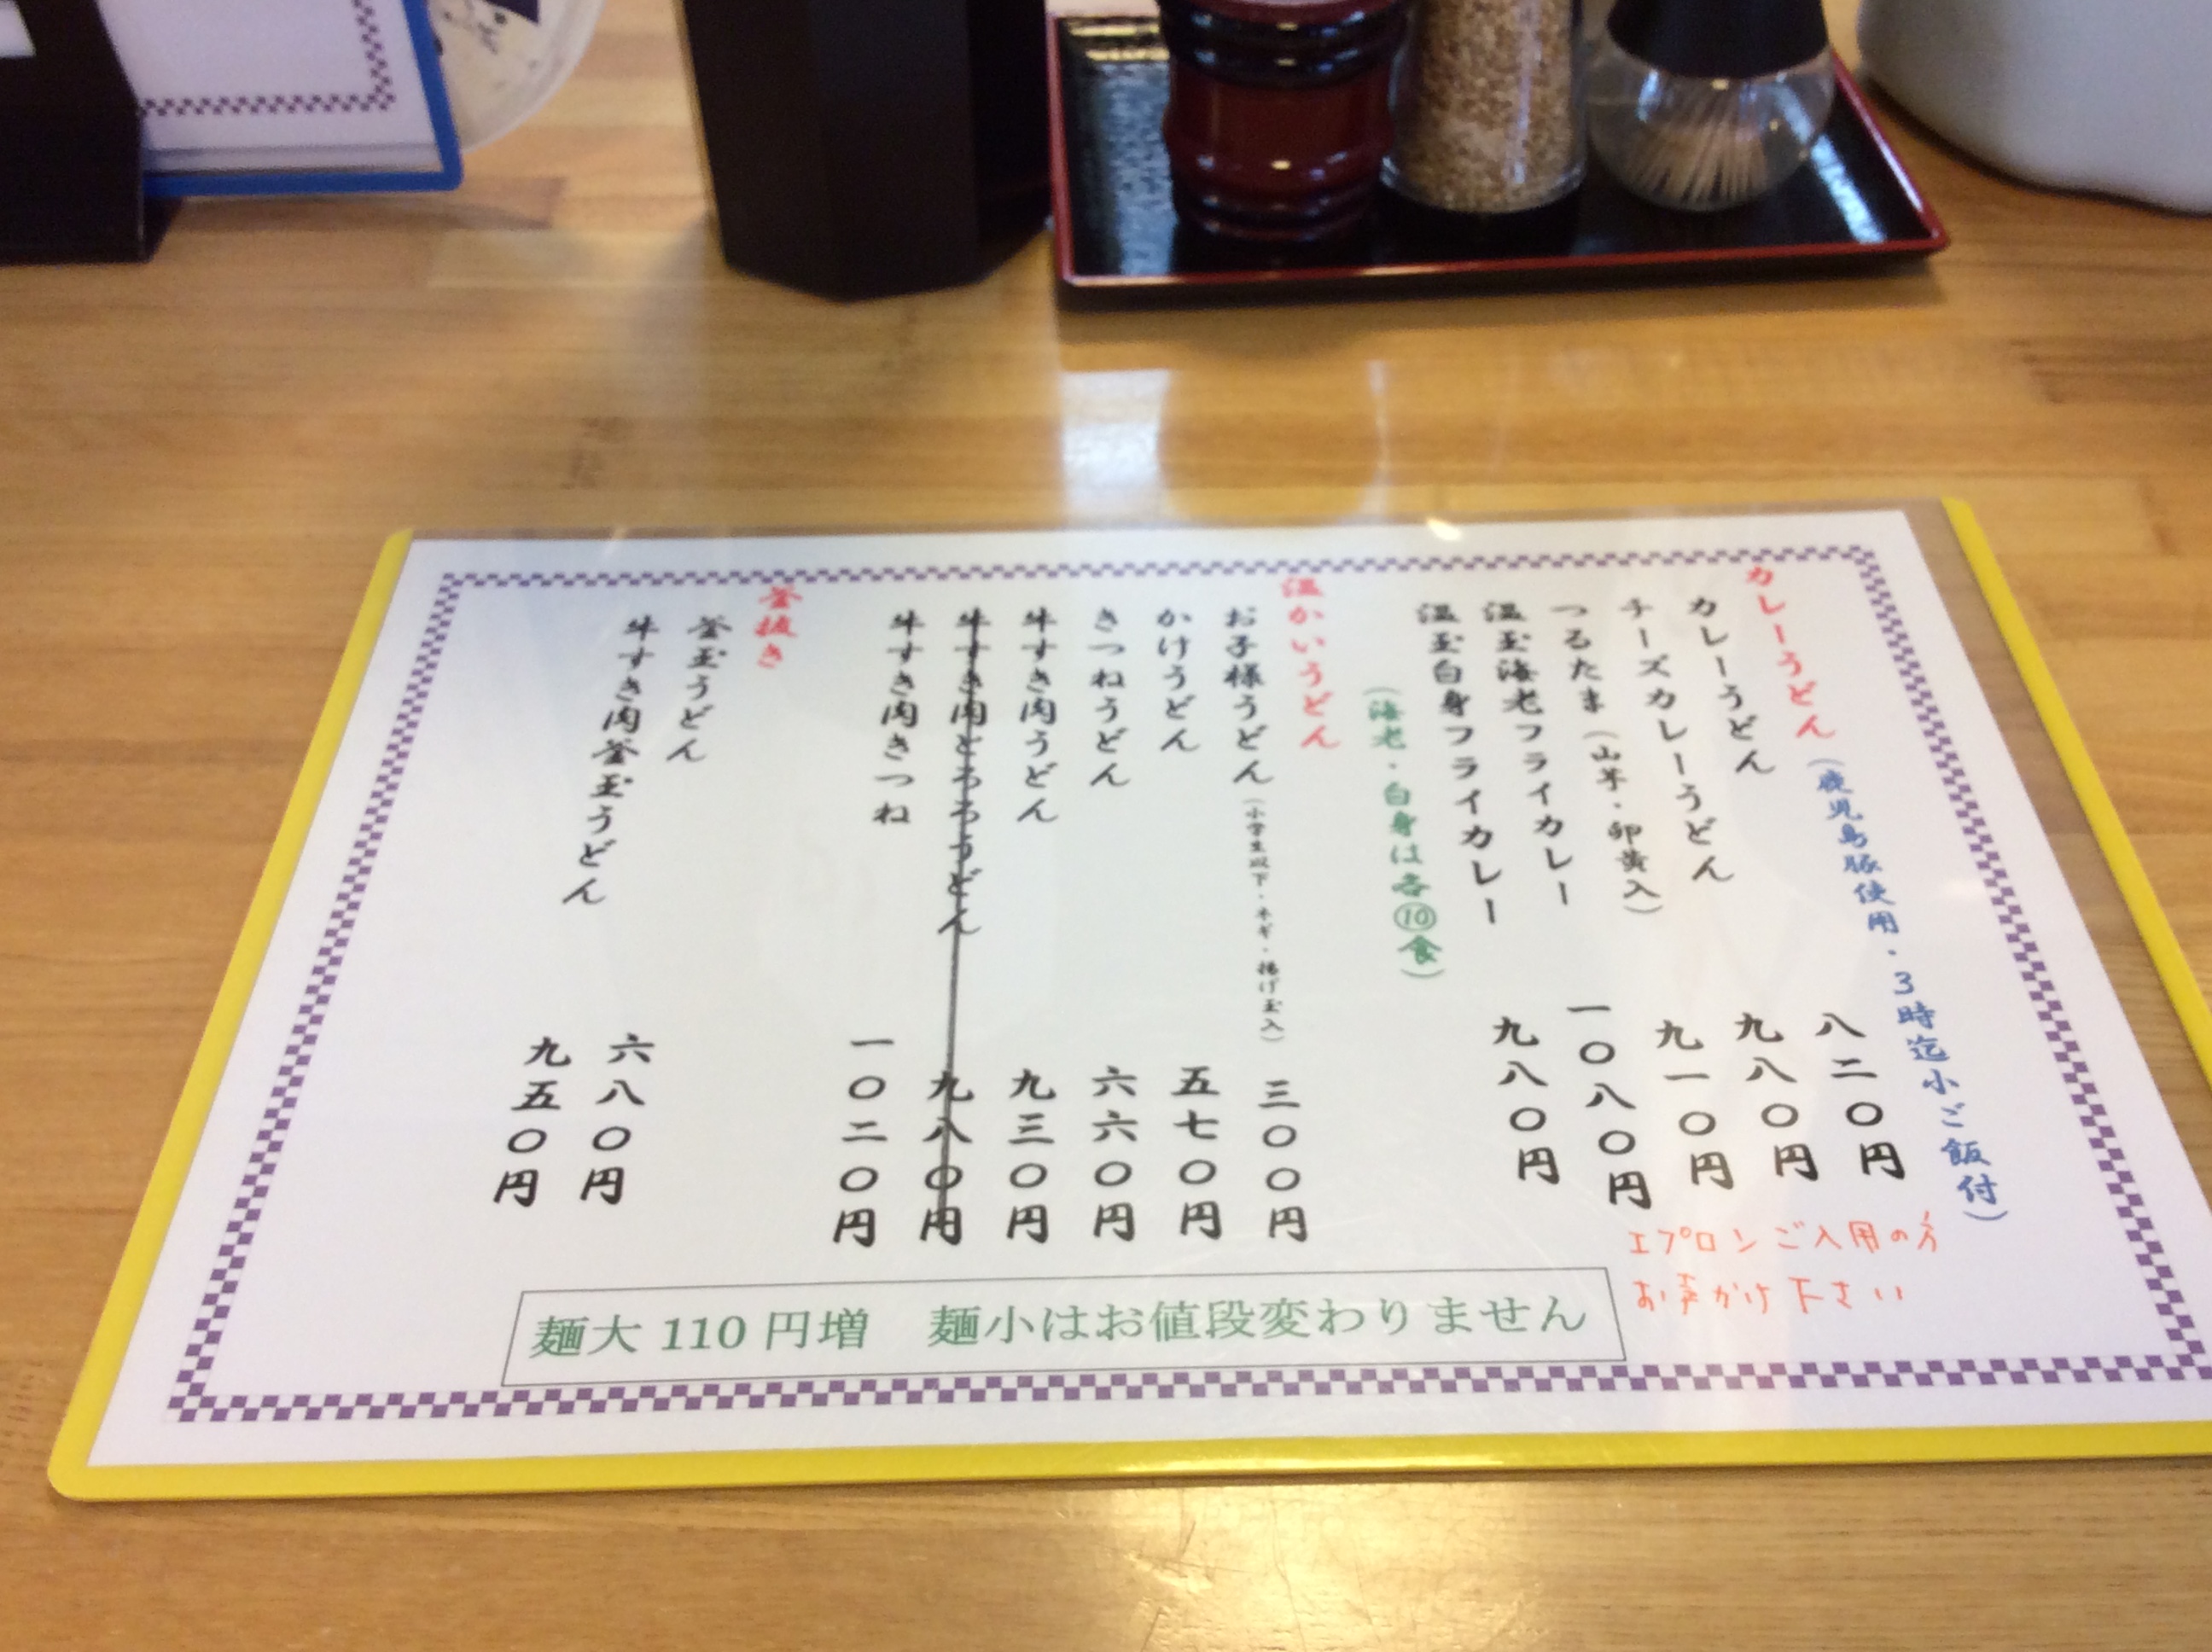 カレーうどん(鹿児島豚使用・3時迄小ご飯付)
カレーうどん 八二〇円
チーズカレーうどん 九八〇円
つるたま(山芋・卵黄入) 九一〇円
温玉海老フライカレー 一〇八〇円
温玉白身フライカレー 九八〇円
(海老・白身は各⑩食)
エプロンご入用の方
お声かけ下さい
温かいうどん
お子様うどん(小学生以下・ネギ・揚げ玉入) 三〇〇円
かけうどん 五七〇円
きつねうどん 六六〇円
牛すき肉うどん 九三〇円
牛すき肉とろろうどん 九八〇円
牛すき肉きつね 一〇二〇円
釜抜き
釜玉うどん 六八〇円
牛すき肉釜玉うどん 九五〇円
麺大110円増 麺小はお値段変わりません